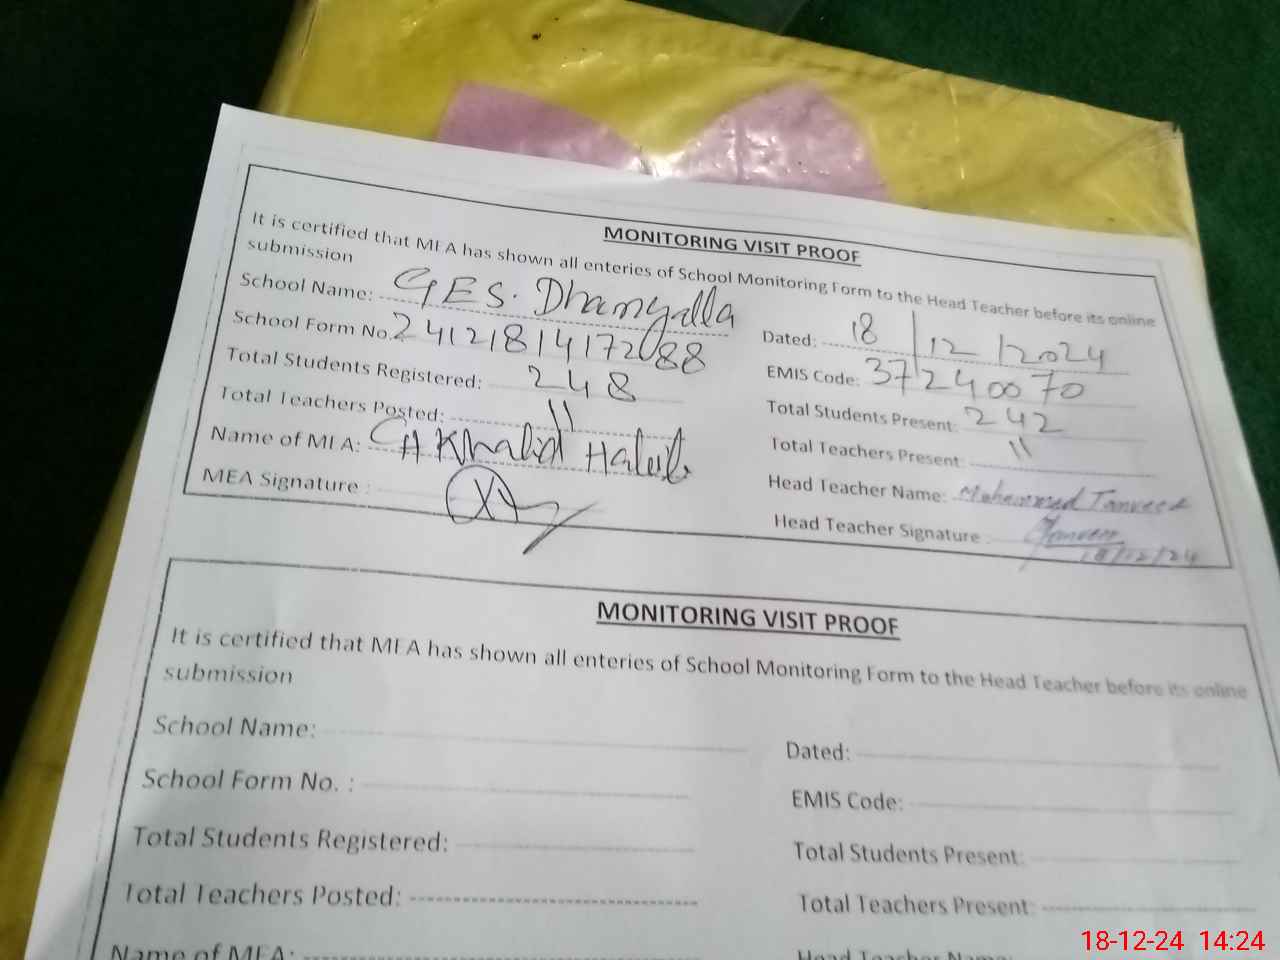 MONITORING VISIT PROOF
It is certified that MEA has shown all enteries of School Monitoring Form to the Head Teacher before its online
submission
School Name: GES. Dhangalla
Dated: 18/12/2024
School Form No. 24121814172088
EMIS Code: 37240070
Total Students Registered: 248
Total Students Present: 242
Total Teachers Posted: 11
Total Teachers Present: 11
Name of MEA: CH Khalid
Head Teacher Name: Muhammad Tanveer
MEA Signature :
Head Teacher Signature : Tanveer
18/12/24
MONITORING VISIT PROOF
It is certified that MEA has shown all enteries of School Monitoring Form to the Head Teacher before its online
submission
School Name:
Dated:
School Form No. :
EMIS Code:
Total Students Registered:
Total Students Present:
Total Teachers Posted:
Total Teachers Present:
Name of MEA:
Head Teacher Name:
18-12-24 14:24